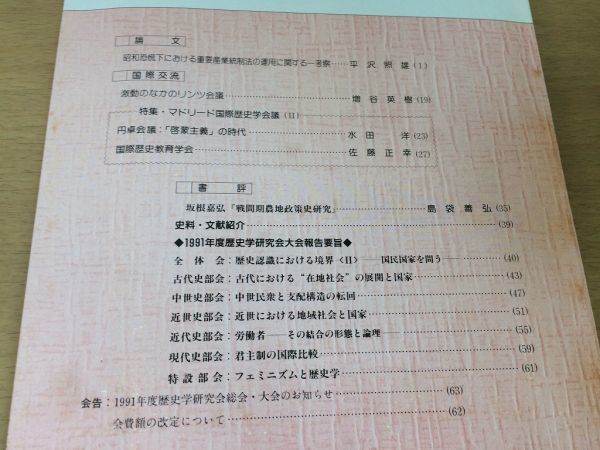 論文
昭和恐慌下における重要産業統制法の運用に関する一考察……平沢照雄(1)
国際交流
激動のなかのリンツ会議……増谷英樹(19)
特集・マドリード国際歴史学会議(II)
円卓会議:「啓蒙主義」の時代……水田洋(23)
国際歴史教育学会……佐藤正幸(27)
書評
坂根嘉弘『戦間期農地政策史研究』……島袋善弘(35)
史料・文献紹介……(39)
◆1991年度歴史学研究会大会報告要旨◆
全体会:歴史認識における境界〈II〉——国民国家を問う——……(40)
古代史部会:古代における“在地社会”の展開と国家……(43)
中世史部会:中世民衆と支配構造の転回……(47)
近世史部会:近世における地域社会と国家……(51)
近代史部会:労働者——その結合の形態と論理——……(55)
現代史部会:君主制の国際比較……(59)
特設部会:フェミニズムと歴史学……(61)
会告:1991年度歴史学研究会総会・大会のお知らせ……(63)
会費額の改定について……(62)